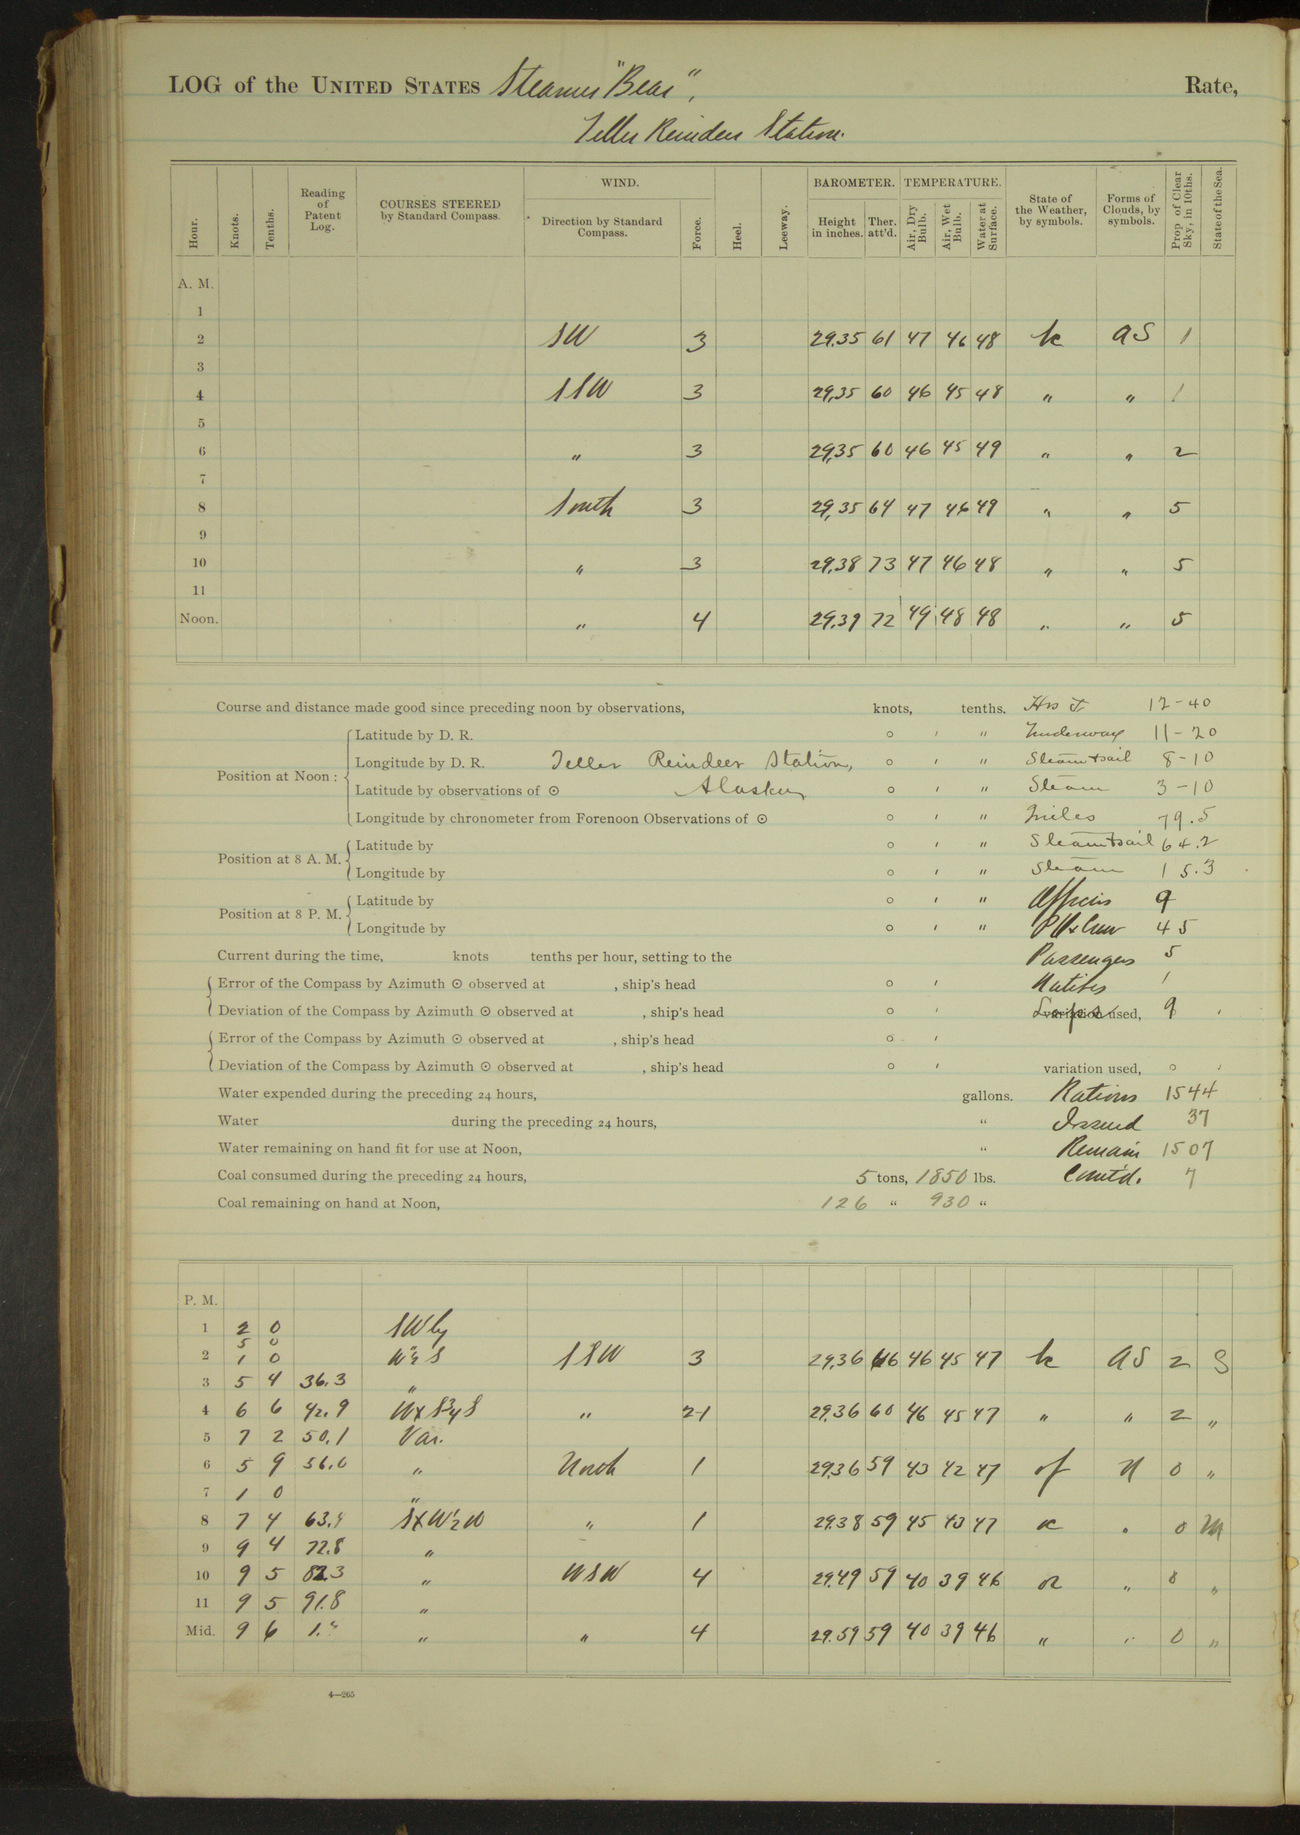 LOG of the UNITED STATES Steamer "Bear", Rate,
Teller Reindeer Station.
WIND. BAROMETER. TEMPERATURE.
Hour. Knots. Tenths. Reading of Patent Log. COURSES STEERED by Standard Compass. Direction by Standard Compass. Force. Heel. Leeway. Height in inches. Ther. att'd. Air, Dry Bulb. Air, Wet Bulb. Water at Surface. State of the Weather, by symbols. Forms of Clouds, by symbols. Prop of Clear Sky, in 10ths. State of the Sea.
A. M.
1
2 SW 3 29.35 61 47 46 48 bc AS 1
3
4 SSW 3 29.35 60 46 45 48 " " 1
5
6 " 3 29.35 60 46 45 49 " " 2
7
8 South 3 29.35 64 47 46 49 " " 5
9
10 " 3 29.38 73 47 46 48 " " 5
11
Noon. " 4 29.39 72 49 48 48 " " 5
Course and distance made good since preceding noon by observations, knots, tenths. Hrs 12-40
Latitude by D. R. ° ′ ″ Underway 11-20
Position at Noon : Longitude by D. R. Teller Reindeer Station, ° ′ ″ Steam & sail 8-10
Latitude by observations of ☉ Alaska ° ′ ″ Steam 3-10
Longitude by chronometer from Forenoon Observations of ☉ ° ′ ″ Miles 79.5
Position at 8 A. M. Latitude by ° ′ ″ Steam & sail 64.2
Longitude by ° ′ ″ Steam 15.3
Position at 8 P. M. Latitude by ° ′ ″ Officers 9
Longitude by ° ′ ″ Crew 45
Current during the time, knots tenths per hour, setting to the Passengers 5
Error of the Compass by Azimuth ☉ observed at , ship's head ° ′ Natives 1
Deviation of the Compass by Azimuth ☉ observed at , ship's head ° ′ variation used, 9 ′
Error of the Compass by Azimuth ☉ observed at , ship's head ° ′
Deviation of the Compass by Azimuth ☉ observed at , ship's head ° ′ variation used, ° ′
Water expended during the preceding 24 hours, gallons. Rations 1544
Water during the preceding 24 hours, " Issued 37
Water remaining on hand fit for use at Noon, " Remain 1507
Coal consumed during the preceding 24 hours, 5 tons, 1850 lbs. Com'td. 7
Coal remaining on hand at Noon, 126 " 930 "
P. M.
1 2 0 SWly
5 0
2 1 0 W½S SSW 3 29.36 46 45 47 bc AS 2 S
3 5 4 36.3 "
4 6 6 42.9 WxS¾S " 2-1 29.36 60 46 45 47 " " 2 "
5 7 2 50.1 Var.
6 5 9 56.0 " North 1 29.36 59 43 42 47 of N 0 "
7 1 0 "
8 7 4 63.4 SxW½W " 1 29.38 59 45 43 47 " 0 M
9 9 4 72.8 "
10 9 5 82.3 " WSW 4 29.49 59 40 39 46 " 0 "
11 9 5 91.8 "
Mid. 9 6 1.4 " " 4 29.59 59 40 39 46 " " 0 "
4—265